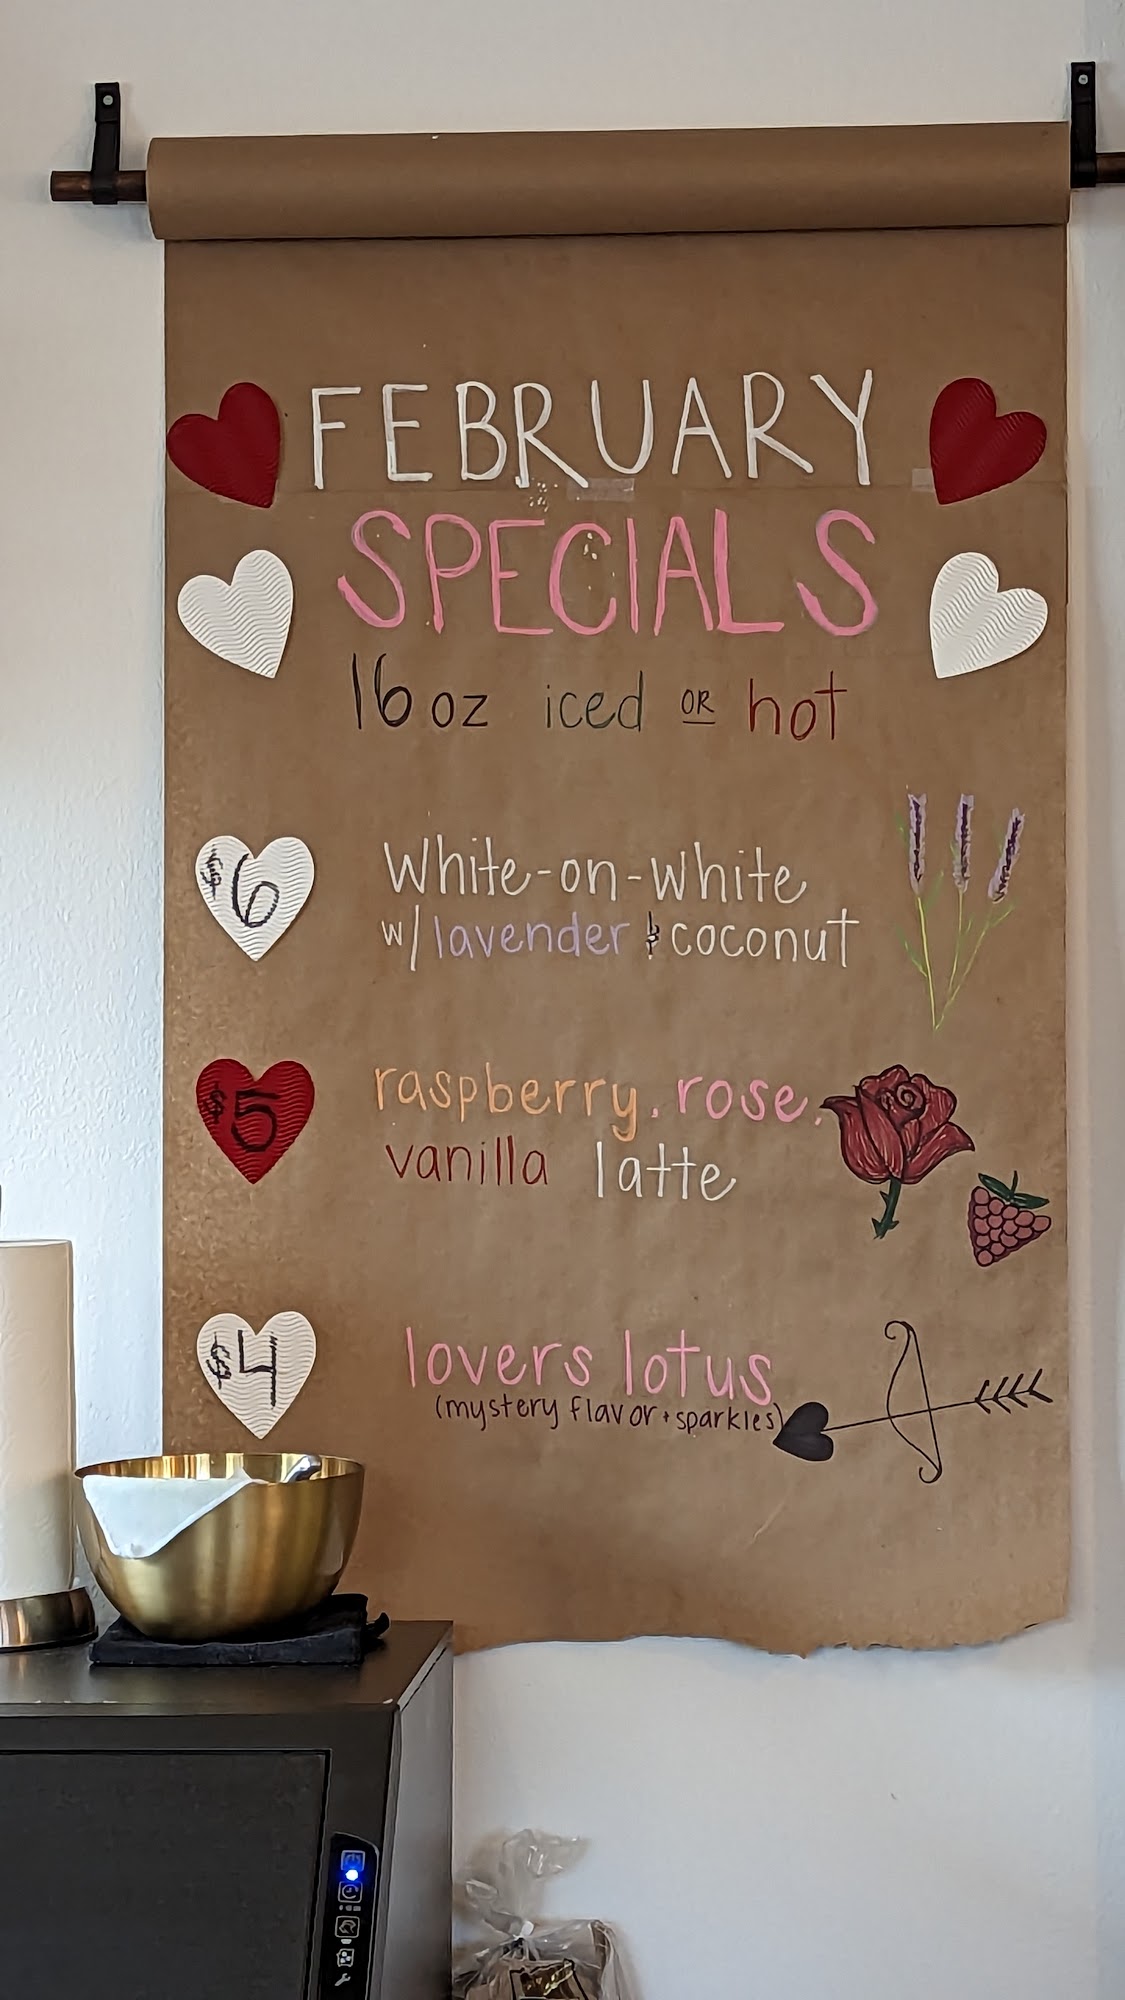 FEBRUARY
SPECIALS
16 oz iced OR hot
$6
White-on-White
w/ lavender & coconut
$5
raspberry, rose,
vanilla latte
$4
lovers lotus
(mystery flavor + sparkles)